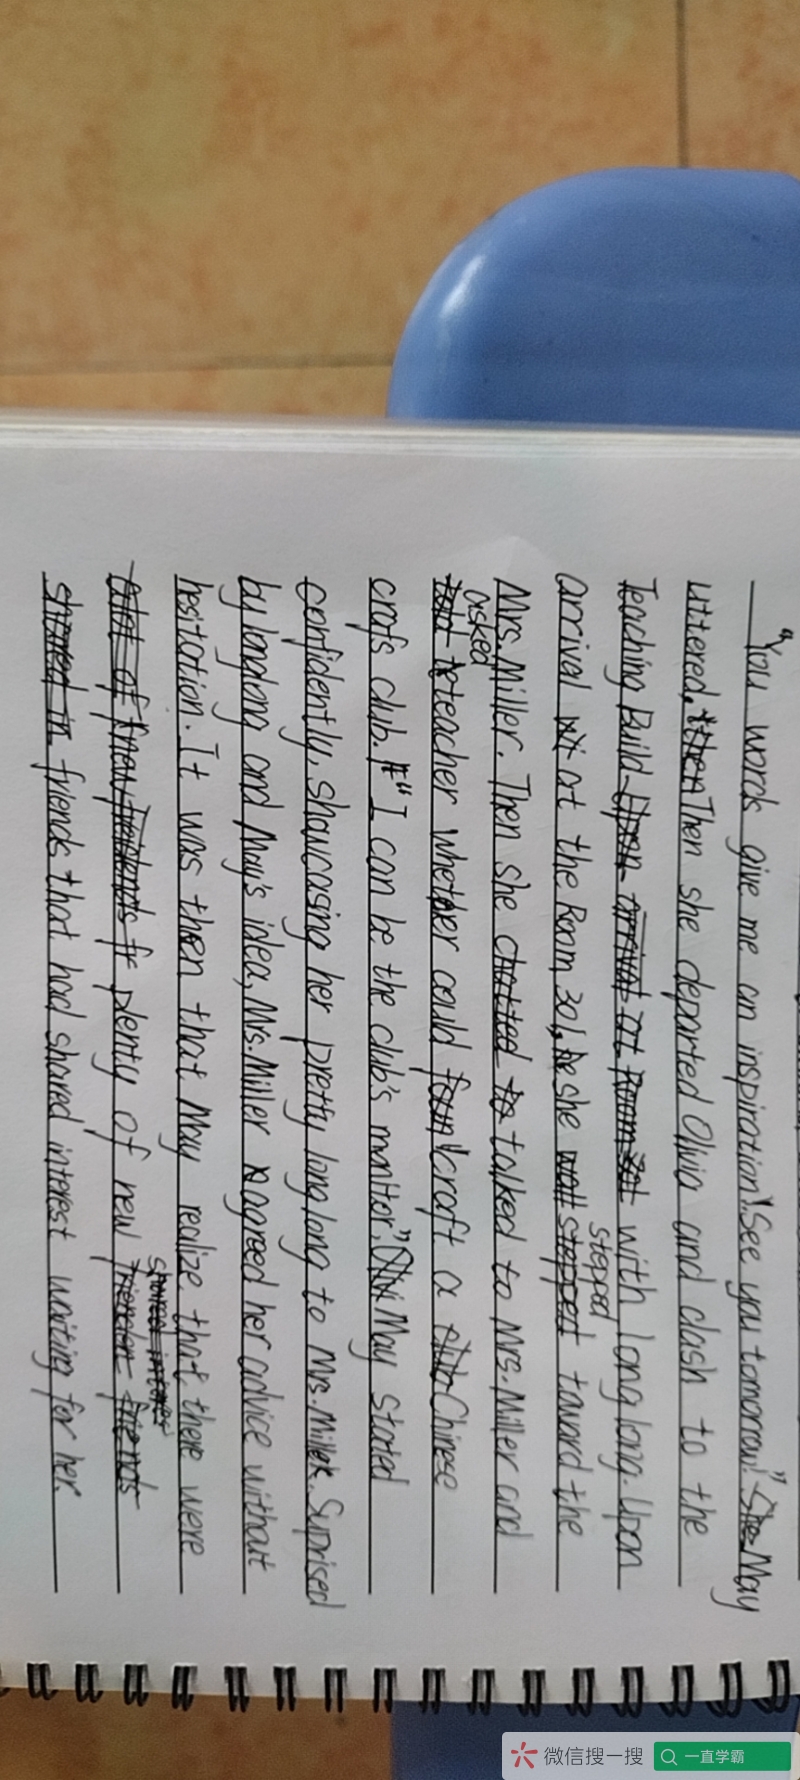 "You words give me an inspiration! See you tomorrow!" She May
uttered, then Then she departed Olivia and dash to the
Teaching Build Upon arrival at Room 301 with longlong. Upon
arrival at the Room 301, he she stepped stepped toward the
Mrs. Miller. Then she chatted to talked to Mrs. Miller and
told asked teacher whether could craft a club Chinese
crafs club. "I can be the club's monitor." Olivi May stated
confidently, showcasing her pretty longlong to Mrs. Miller. Suprised
by longlong and May's idea, Mrs. Miller agreed her advice without
hesitation. It was then that May realize that there were
a lot of plenty of new shared interest friends
shared in friends that had shared interest waiting for her.
微信搜一搜
一直学霸